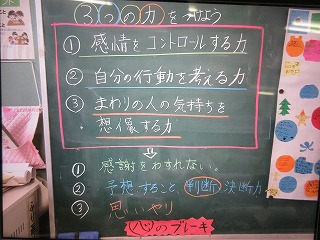 3つの力をつけよう
① 感情をコントロールする力
② 自分の行動を考える力
③ まわりの人の気持ちを
・想像する力
⇩
① 感謝をわすれない。
② 予想すること、判断 決断力
③ 思いやり
心のブレーキ